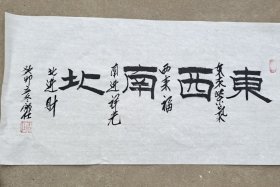 東
東來紫氣
西
西來福
南
南進祥光
北
北進財
癸卯